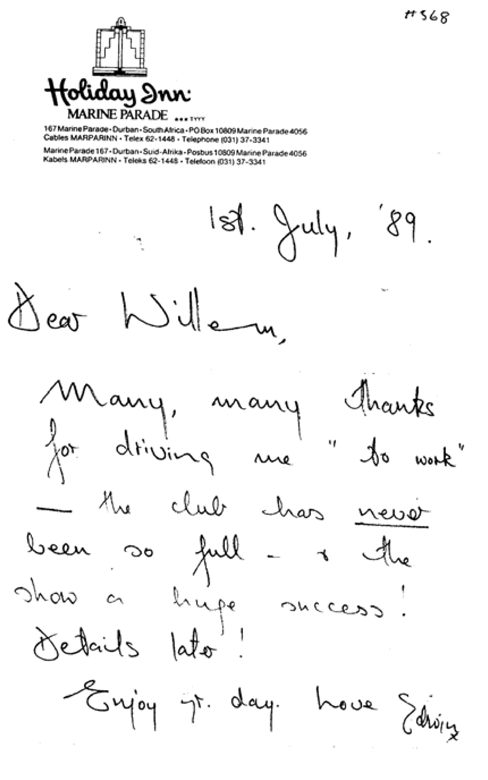 #368
Holiday Inn
MARINE PARADE ...TYYY
167 Marine Parade • Durban • South Africa • PO Box 10809 Marine Parade 4056
Cables MARPARINN • Telex 62-1448 • Telephone (031) 37-3341
Marine Parade 167 • Durban • Suid-Afrika • Posbus 10809 Marine Parade 4056
Kabels MARPARINN • Teleks 62-1448 • Telefoon (031) 37-3341
1st. July, '89.
Dear Willem,
Many, many thanks
for driving me "to work"
— the club has never
been so full - & the
show a huge success!
Details later!
Enjoy yr. day. Love Edwin x